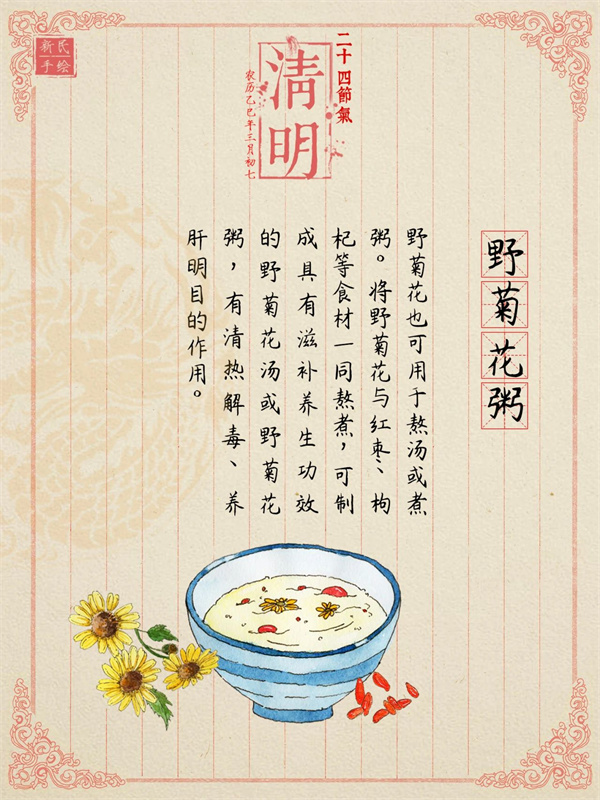 新民
手绘
二十四節氣
清明
农历乙巳年三月初七
野菊花粥
野菊花也可用于熬汤或煮
粥。将野菊花与红枣、枸
杞等食材一同熬煮，可制
成具有滋补养生功效
的野菊花汤或野菊花
粥，有清热解毒、养
肝明目的作用。